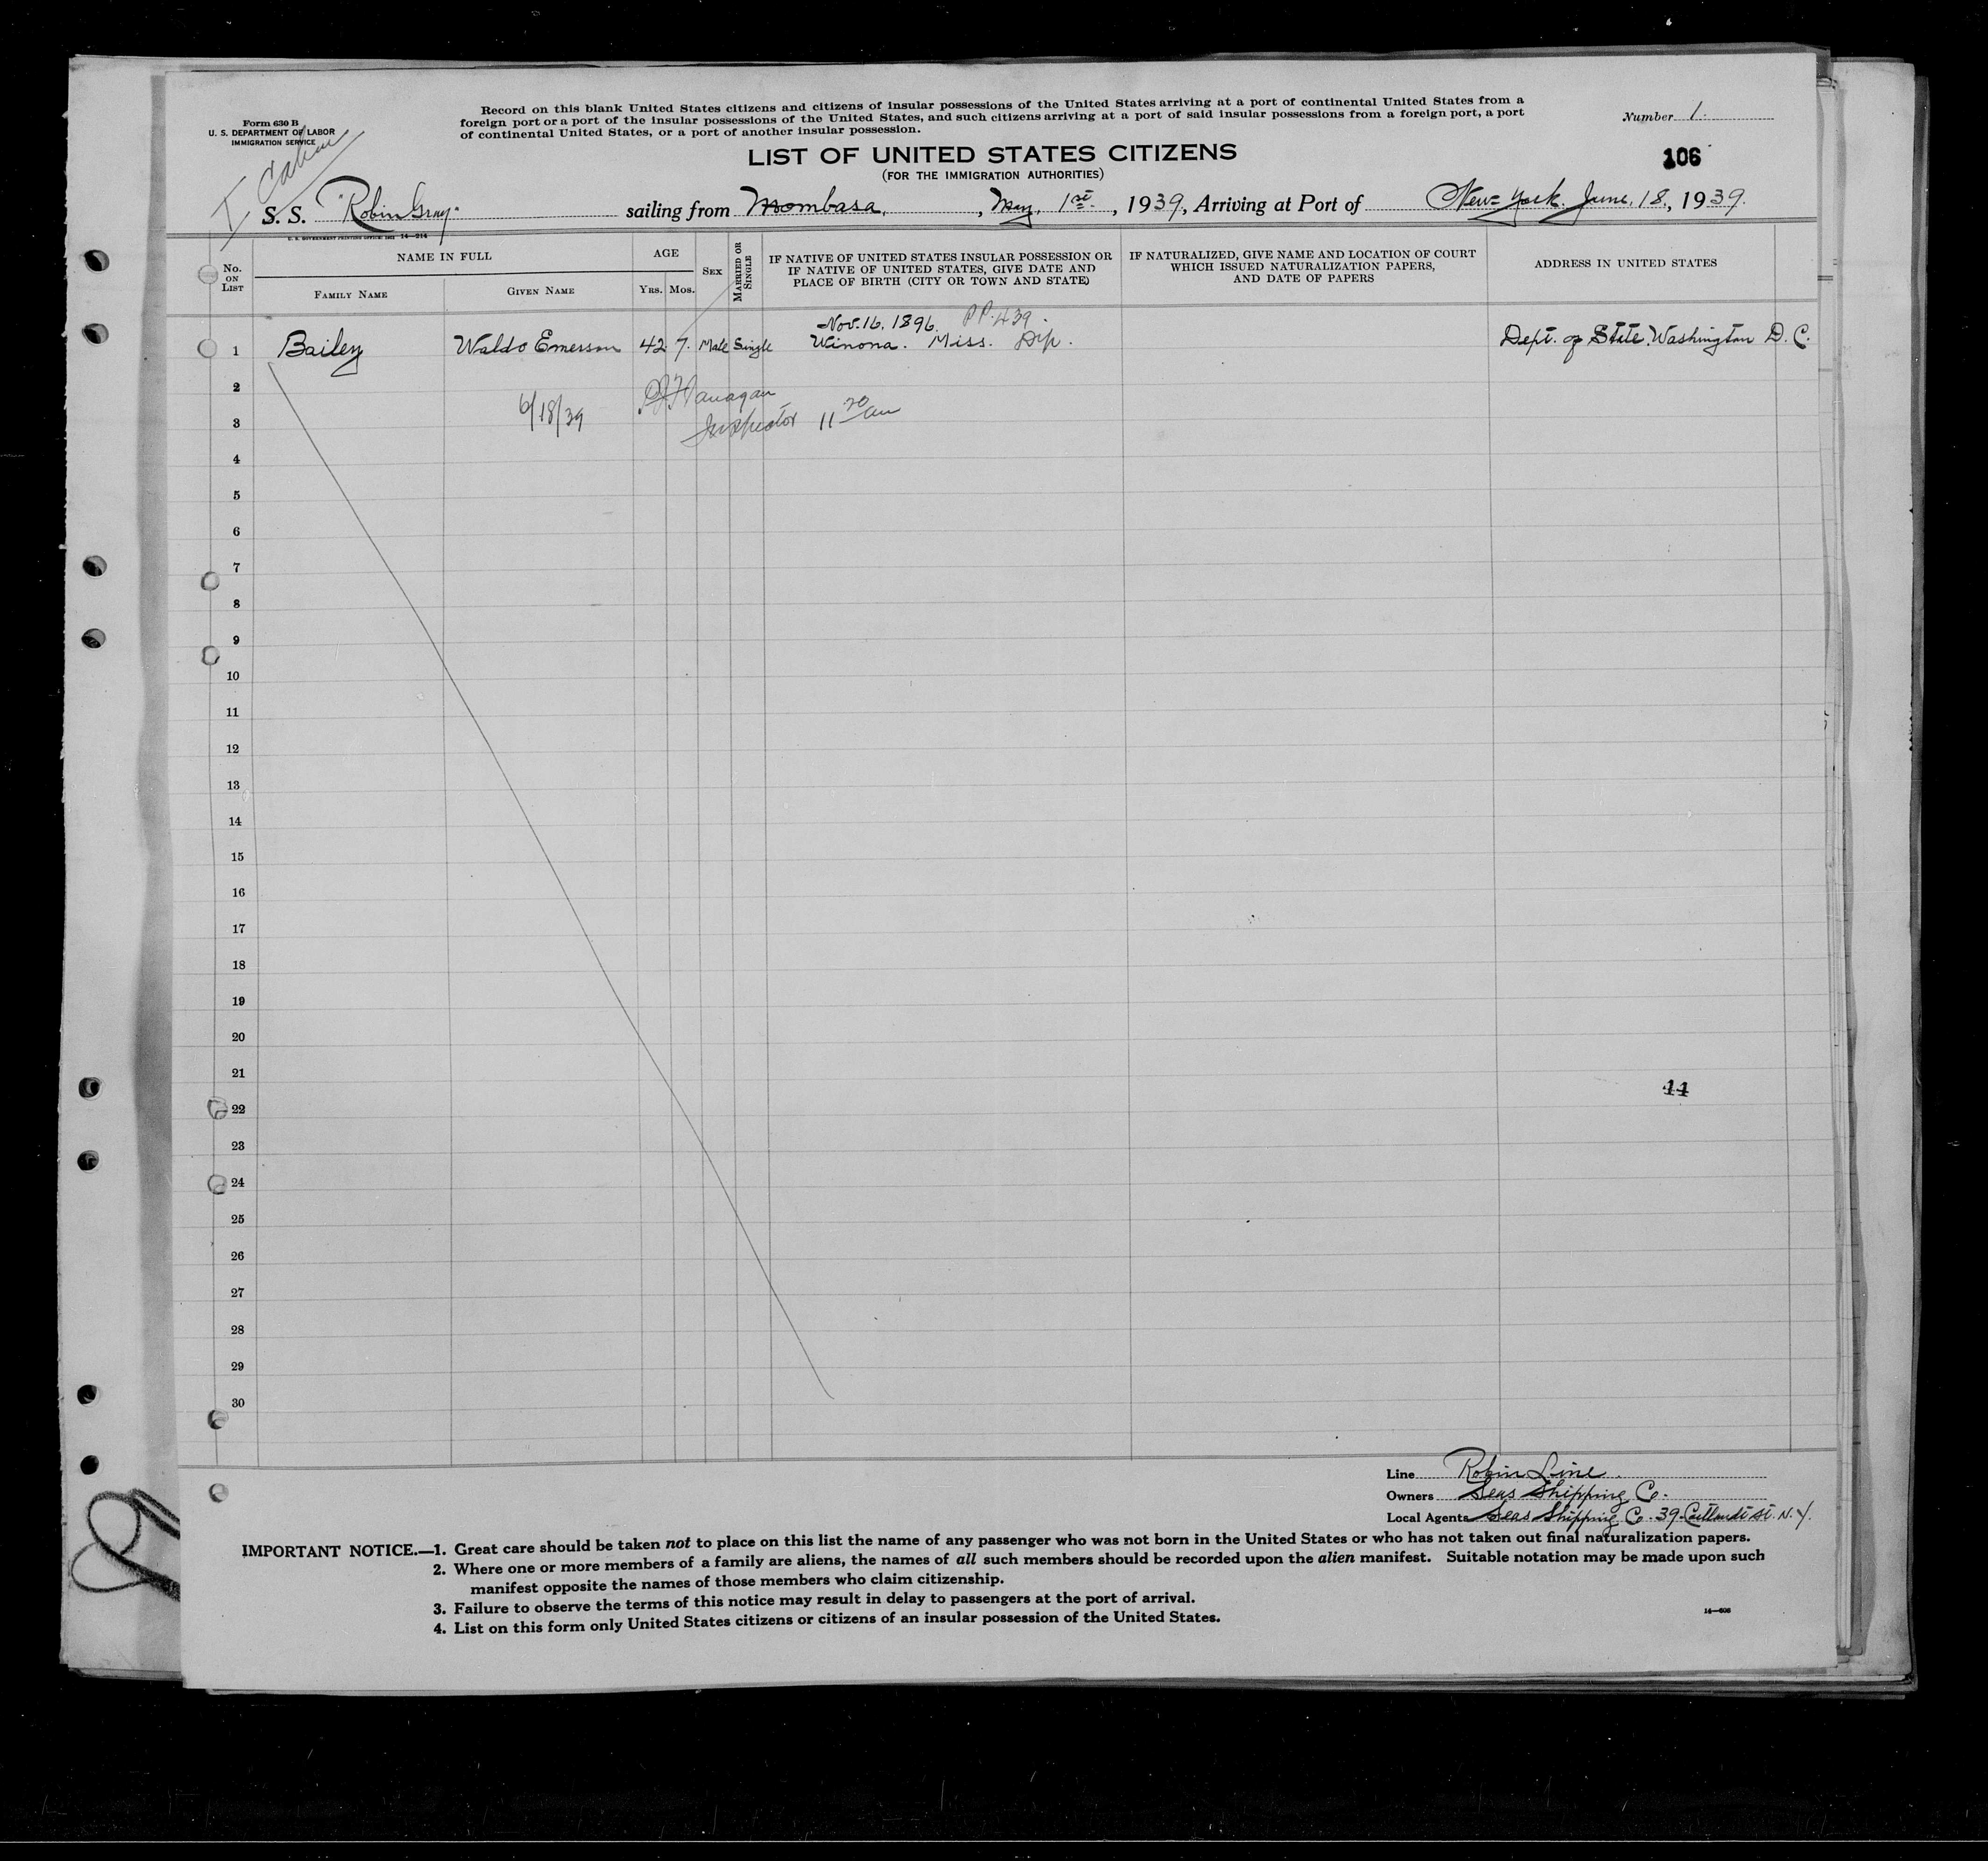 Form 630 B
U. S. DEPARTMENT OF LABOR
IMMIGRATION SERVICE
Record on this blank United States citizens and citizens of insular possessions of the United States arriving at a port of continental United States from a
foreign port or a port of the insular possessions of the United States, and such citizens arriving at a port of said insular possessions from a foreign port, a port
of continental United States, or a port of another insular possession.
Number 1.
I Cabin
LIST OF UNITED STATES CITIZENS
106
(FOR THE IMMIGRATION AUTHORITIES)
S. S. "Robin Gray" sailing from Mombasa, , May, 1st. , 1939, Arriving at Port of New-York. June, 18, 1939.
U. S. GOVERNMENT PRINTING OFFICE: 14—214
No. ON LIST
NAME IN FULL
FAMILY NAME
GIVEN NAME
AGE
YRS. MOS.
SEX
MARRIED OR SINGLE
IF NATIVE OF UNITED STATES INSULAR POSSESSION OR
IF NATIVE OF UNITED STATES, GIVE DATE AND
PLACE OF BIRTH (CITY OR TOWN AND STATE)
IF NATURALIZED, GIVE NAME AND LOCATION OF COURT
WHICH ISSUED NATURALIZATION PAPERS,
AND DATE OF PAPERS
ADDRESS IN UNITED STATES
Nov. 16, 1896. PP. 439.
1 Bailey Waldo Emerson 42 7. Male Single Winona. Miss. Dip. Dept. of State. Washington D. C.
2 Flanagan
3 6/18/39 Inspector 11 20 am
4
5
6
7
8
9
10
11
12
13
14
15
16
17
18
19
20
21
44
22
23
24
25
26
27
28
29
30
Line Robin Line.
Owners Seas Shipping Co.
Local Agents Seas Shipping Co. 39. Cortlandt St. N.Y.
IMPORTANT NOTICE.—1. Great care should be taken not to place on this list the name of any passenger who was not born in the United States or who has not taken out final naturalization papers.
2. Where one or more members of a family are aliens, the names of all such members should be recorded upon the alien manifest. Suitable notation may be made upon such
manifest opposite the names of those members who claim citizenship.
3. Failure to observe the terms of this notice may result in delay to passengers at the port of arrival.
4. List on this form only United States citizens or citizens of an insular possession of the United States.
14—608